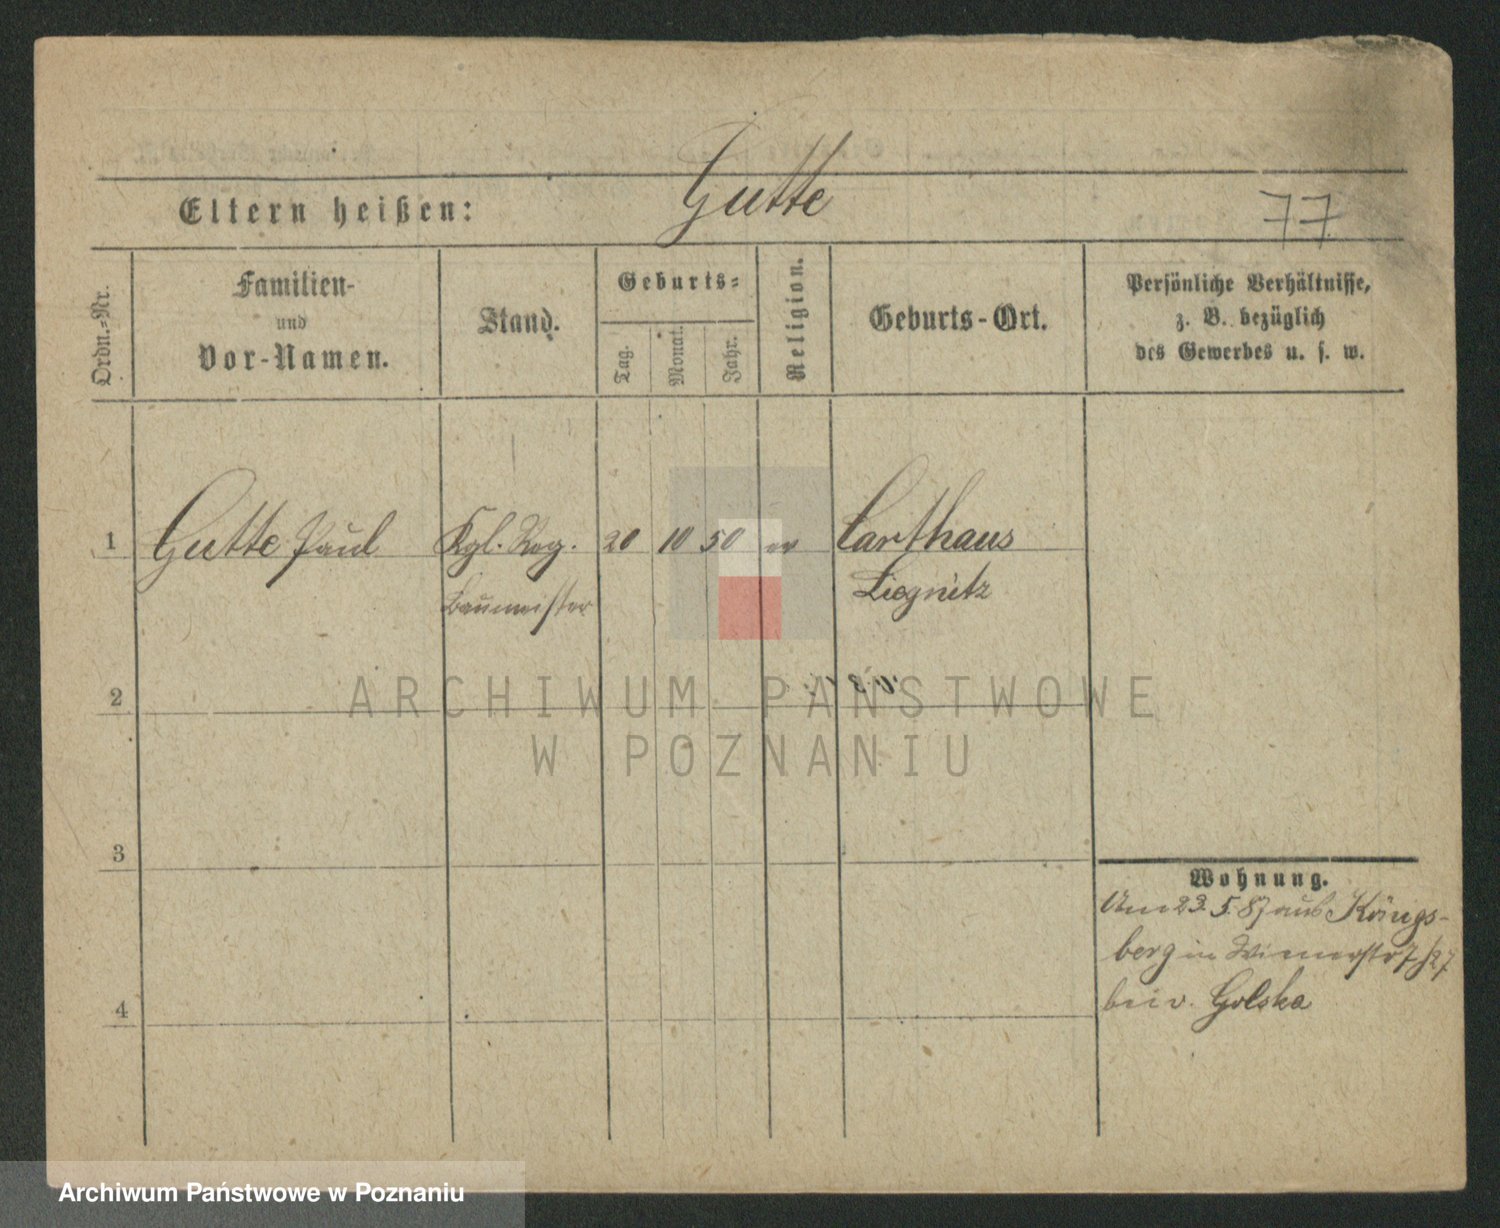 Gutte
Eltern heißen:
77
Ordn.=Nr.
Familien-
und
Vor-Namen.
Stand.
Geburts=
Tag.
Monat.
Jahr.
Religion.
Geburts-Ort.
Persönliche Verhältnisse,
z. B. bezüglich
des Gewerbes u. s. w.
1 Gutte Paul Kgl. Reg. 20 10 50 ev Carthaus
Baumeister Liegnitz
2
ARCHIWUM PAŃSTWOWE
W POZNANIU
3
Wohnung.
Am 23.5.87 aus Königs-
berg in Wienerstr 7/27
bei v. Golska
4
Archiwum Państwowe w Poznaniu